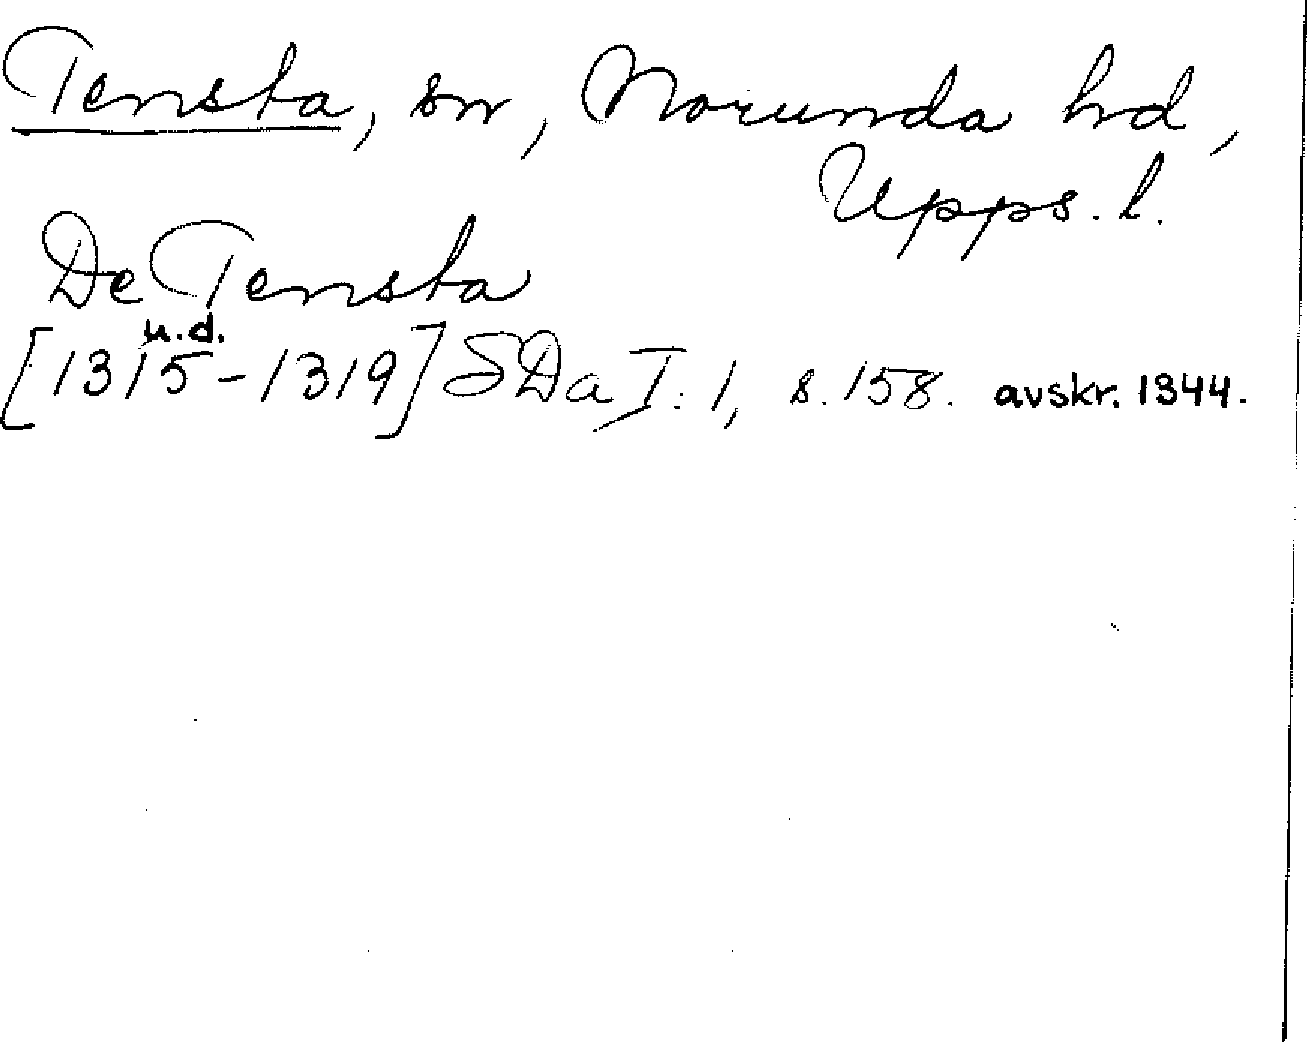 Tensta, sn, Norunda hd,
Upps. l.
De Tensta
u.d.
[1315-1319] SDa I:1, s. 158. avskr. 1344.